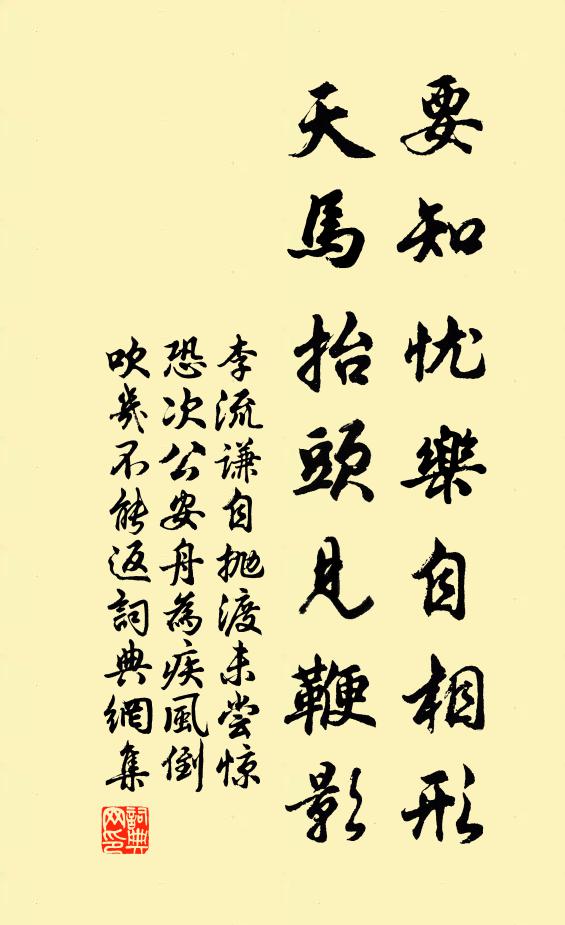 要知忧樂自相形
天馬抬頭見鞭影
李流谦自抛渡未尝惊
恐次公安舟為疾風倒
吹幾不能返詞典網集
詞典网印